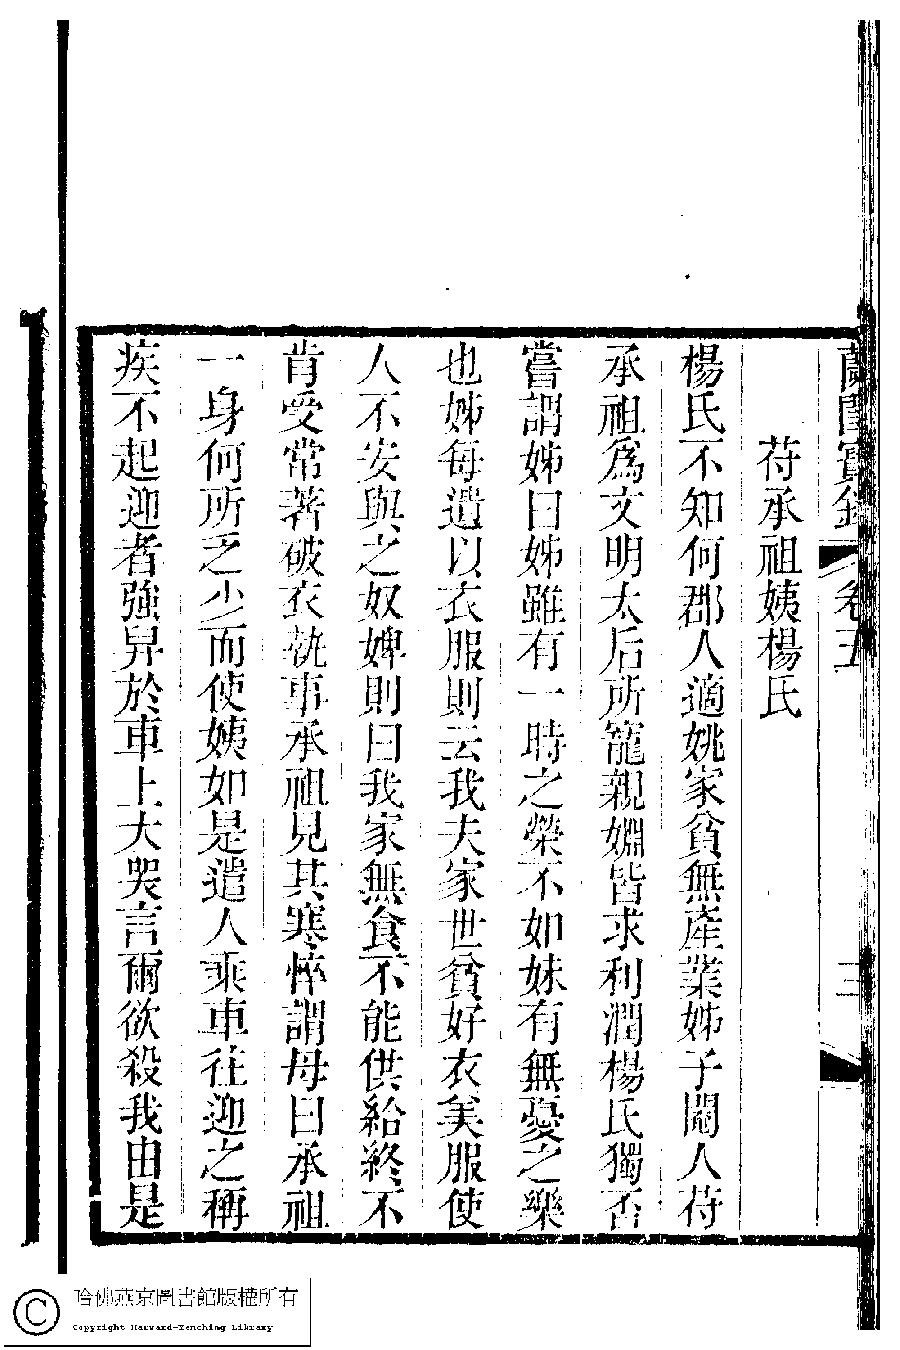 蘭閨寶錄 卷五 三
苻承祖姨楊氏
楊氏不知何郡人適姚家貧無產業姊子閹人苻
承祖爲文明太后所寵親婣皆求利潤楊氏獨否
嘗謂姊曰姊雖有一時之榮不如妹有無憂之樂
也姊每遺以衣服則云我夫家世貧好衣美服使
人不安與之奴婢則曰我家無食不能供給終不
肯受常著破衣執事承祖見其寒悴謂母曰承祖
一身何所乏少而使姨如是遣人乘車往迎之稱
疾不起迎者強舁於車上大哭言爾欲殺我由是
哈佛燕京圖書館版權所有
Copyright Harvard-Yenching Library